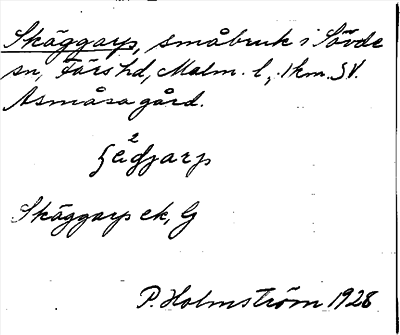 Skäggarp, småbruk i Sövde
sn, Färs hd, Malm. l., 1 km. SV.
Asmåsa gård.
Skäggarp ek, G
P. Holmström 1928